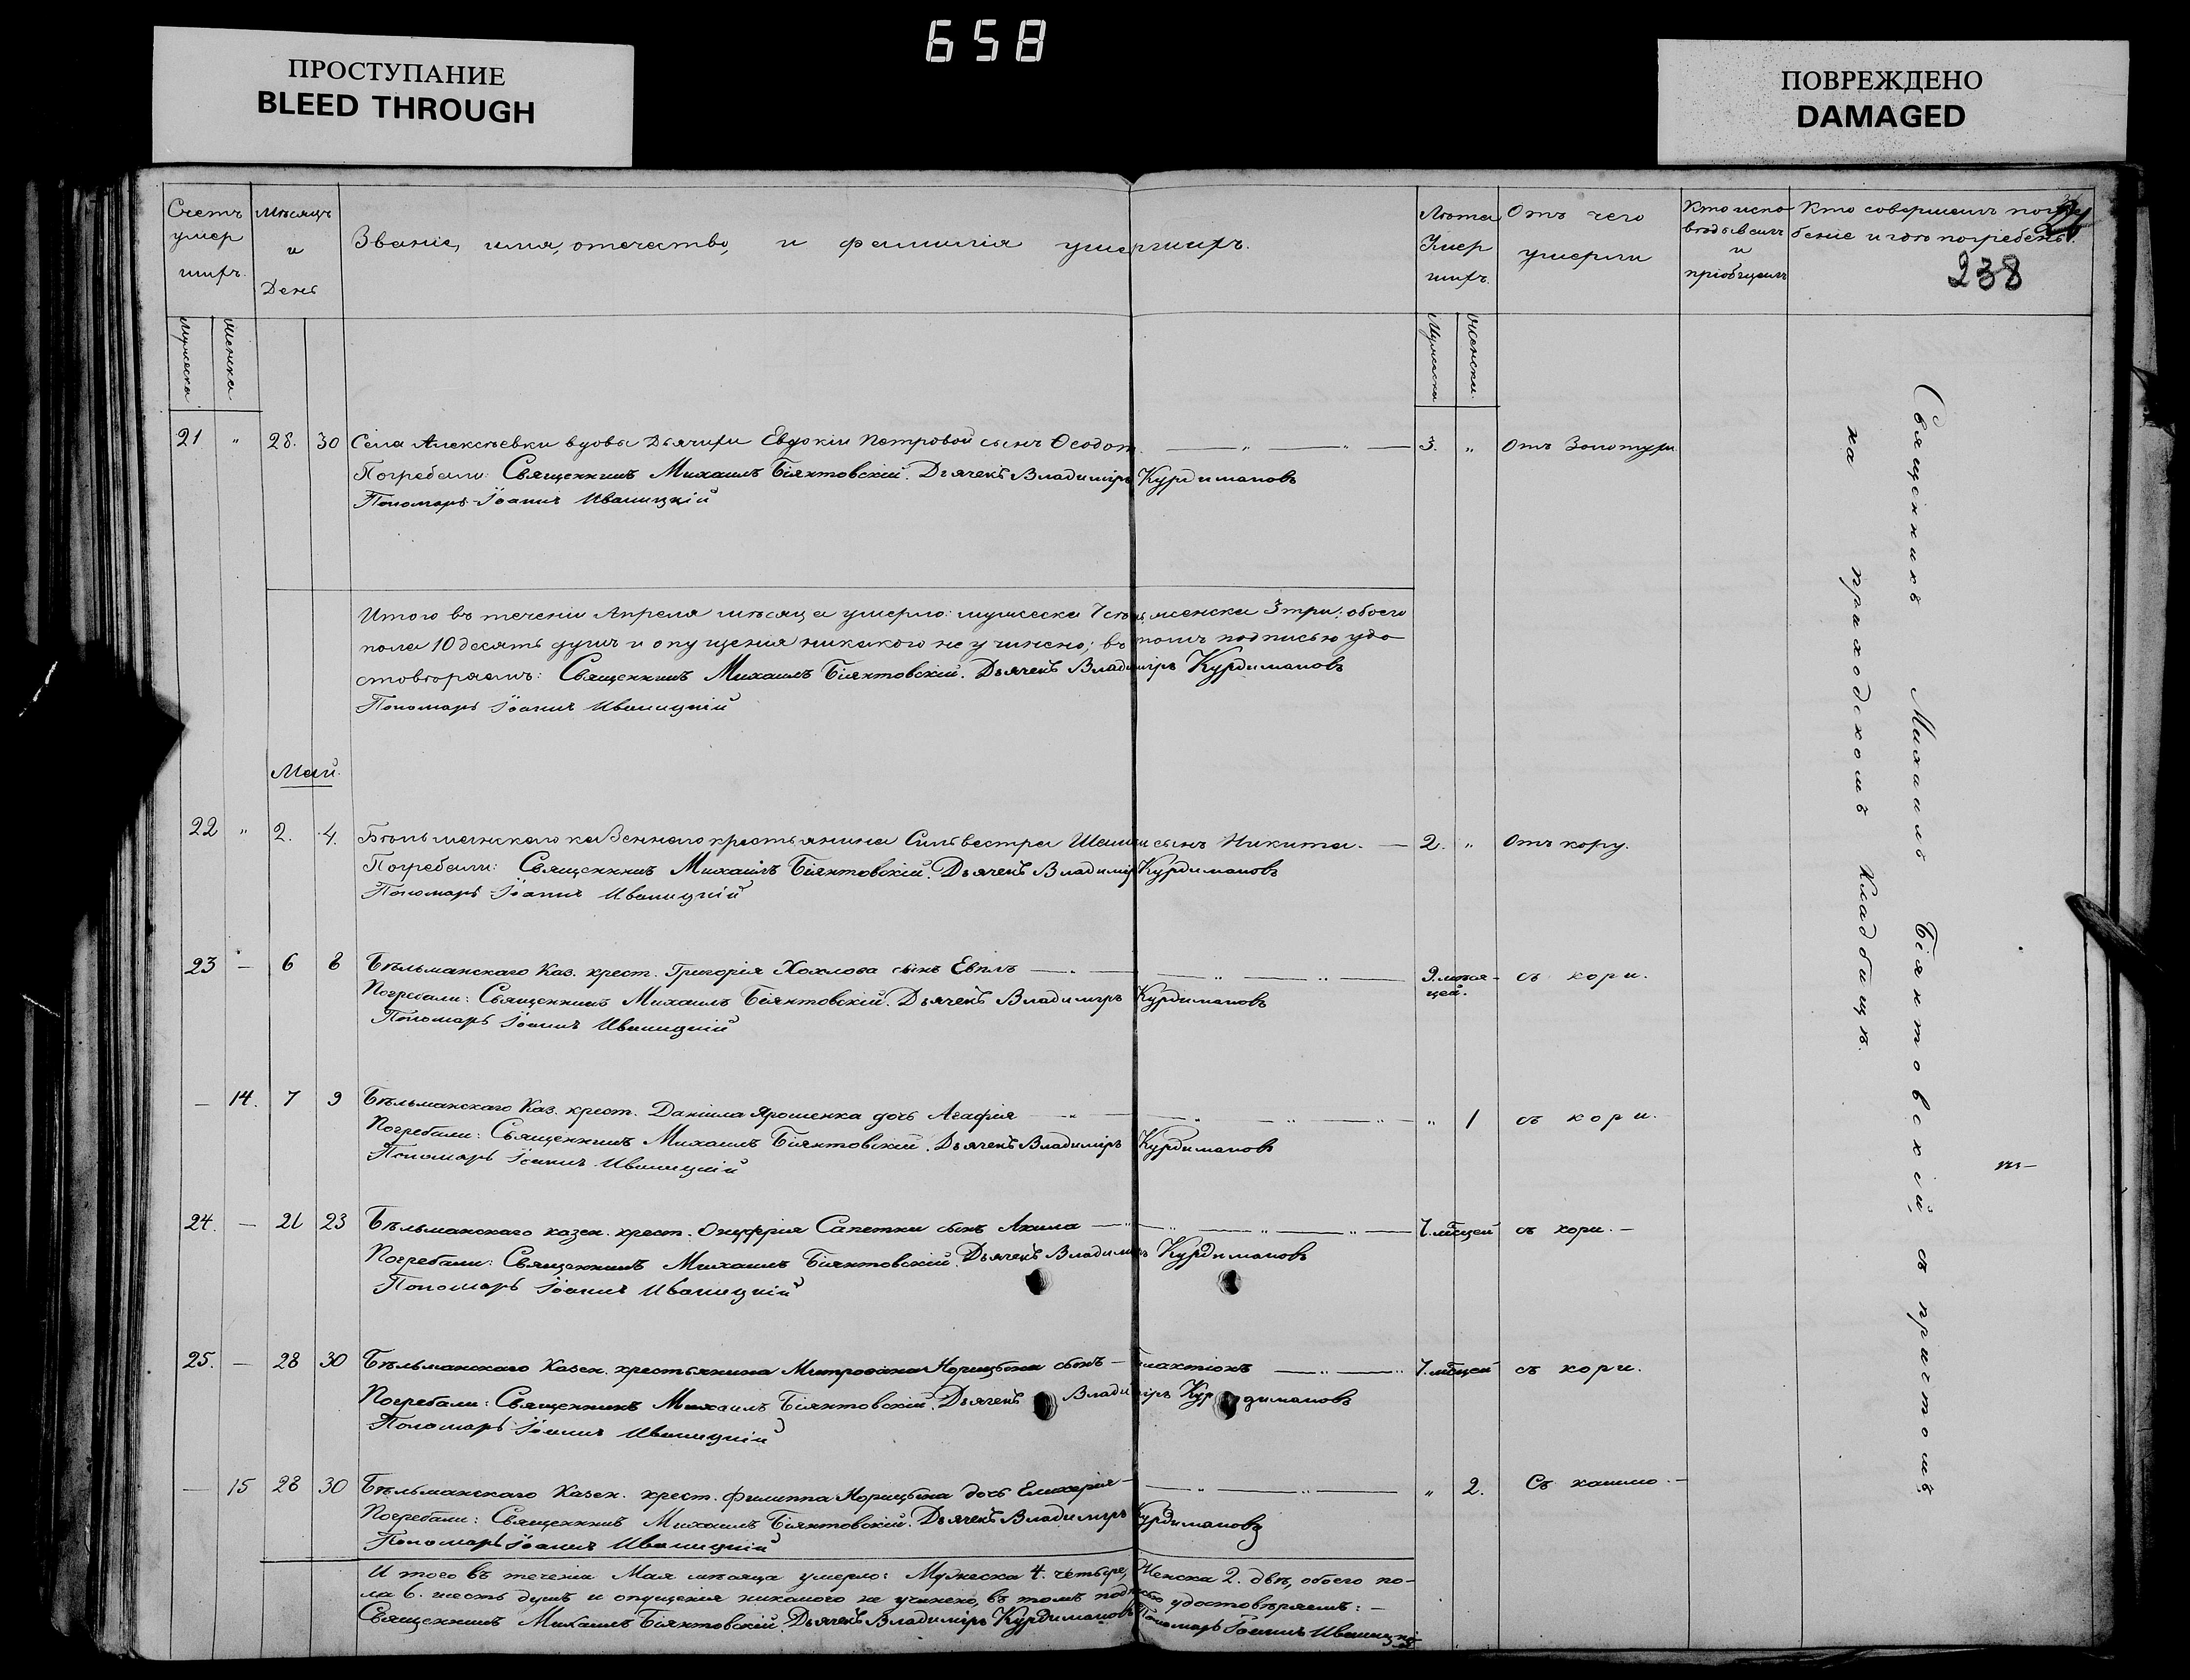 658
ПРОСТУПАНИЕ
BLEED THROUGH
ПОВРЕЖДЕНО
DAMAGED
Счетъ умер шихъ.
Мѣсяцъ и День
Званіе, имя, отечество, и фамилія умершихъ.
Лѣта Умер шихъ.
Отъ чего умерли
Кто испо вѣдывалъ и пріобщалъ
Кто совершалъ погре беніе и гдѣ погребенъ.
238
Мужеска
Женска
Мужеска
Женска
21 " 28. 30 Села Алексѣевки вдовы Дьячихи Евдокіи Петровой сынъ Ѳеодот 3. " Отъ Золотухи
Погребали: Священникъ Михаилъ Біянтовскій. Дьячекъ Владиміръ Курдимановъ
Пономарь Іоаннъ Иваницкій
Итого въ теченіи Апреля мѣсяца умерло: мужеска 7 семь, женска 3 три; обоего
пола 10 десять душъ и опущенія никакого не учинено; въ томъ подписью удо
стовѣряемъ: Священникъ Михаилъ Біянтовскій. Дьячекъ Владиміръ Курдимановъ
Пономарь Іоаннъ Иваницкій
Май.
22 " 2. 4. Бѣльманскаго казеннаго крестьянина Сильвестра сынъ Никита. — 2. " Отъ кору.
Погребали: Священникъ Михаилъ Біянтовскій. Дьячекъ Владиміръ Курдимановъ
Пономарь Іоаннъ Иваницкій
23 — 6 8 Бѣльманскаго Каз. крест. Григорія Хохлова сынъ Евплъ — 9. мѣся-
цей. съ кори.
Погребали: Священникъ Михаилъ Біянтовскій. Дьячекъ Владиміръ Курдимановъ
Пономарь Іоаннъ Иваницкій
— 14. 7 9 Бѣльманскаго Каз. крест. Даніила Ярошенка дочь Агафія — " 1 съ кори.
Погребали: Священникъ Михаилъ Біянтовскій. Дьячекъ Владиміръ Курдимановъ
Пономарь Іоаннъ Иваницкій
24. — 21 23 Бѣльманскаго казен. крест. Онуфрія Сапетки сынъ Акила — 7. мѣсцей съ кори. —
Погребали: Священникъ Михаилъ Біянтовскій. Дьячекъ Владиміръ Курдимановъ
Пономарь Іоаннъ Иваницкій
25. — 28 30 Бѣльманскаго Казен. крестьянина Митрофана сынъ — Галактіонъ — 7. мѣсцей съ кори.
Погребали: Священникъ Михаилъ Біянтовскій. Дьячекъ Владиміръ Курдимановъ
Пономарь Іоаннъ Иваницкій
— 15 28 30 Бѣльманскаго Казен. крест. Филиппа дочь Гликерія — " 2. Съ кашлю. —
Погребали: Священникъ Михаилъ Біянтовскій. Дьячекъ Владиміръ Курдимановъ
Пономарь Іоаннъ Иваницкій
И того въ теченіи Мая мѣсяца умерло: Мужеска 4. четыре, Женска 2. двѣ, обоего по-
ла 6. шесть душъ и опущенія никакого не учинено, въ томъ подписью удостовѣряемъ: —
Священникъ Михаилъ Біянтовскій. Дьячекъ Владиміръ Курдимановъ Пономарь Іоаннъ Иваницкій
Священникъ Михаилъ Біянтовскій, съ причтомъ
на приходскомъ Кладбищѣ.